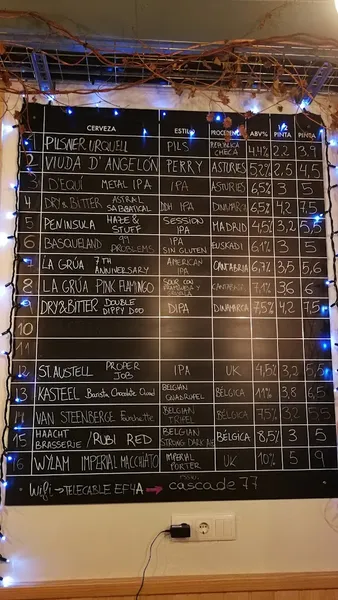 CERVEZA ESTILO PROCEDENCIA ABV% 1/2 PINTA PINTA
1 PILSNER URQUELL PILS REPÚBLICA CHECA 4,4% 2,2 3,9
2 VIUDA D' ANGELÓN PERRY ASTURIES 5,2% 2,5 4,5
3 D'EQUÍ METAL IPA IPA ASTURIES 6,5% 3 5
4 DRY&BITTER ASTRAL SABBATICAL DDH IPA DINAMARCA 6,5% 4,2 7,5
5 PENÍNSULA HAZE & STUFF SESSION IPA MADRID 4,5% 3,2 5,5
6 BASQUELAND 99 PROBLEMS IPA SIN GLUTEN EUSKADI 6,1% 3 5
7 LA GRÚA 7TH ANNIVERSARY AMERICAN IPA CANTABRIA 6,7% 3,5 5,6
8 LA GRÚA PINK FLAMINGO SOUR CON CANTABRIA 7,1% 3,6 6
9 DRY&BITTER DOUBLE DIPPY DOO DIPA DINAMARCA 7,5% 4,2 7,5
10
11
12 ST. AUSTELL PROPER JOB IPA UK 4,5% 3,2 5,5
13 KASTEEL Barista Chocolate Quad BELGIAN QUADRUPEL BÉLGICA 11% 3,8 6,5
14 VAN STEENBERGE BELGIAN TRIPEL BÉLGICA 7,5% 3,2 5,5
15 HAACHT BRASSERIE / RUBI RED BELGIAN STRONG DARK ALE BÉLGICA 8,5% 3 5
16 WYLAM IMPERIAL MACCHIATO IMPERIAL PORTER UK 10% 5 9
Wifi → TELECABLE EF4A → cascade77